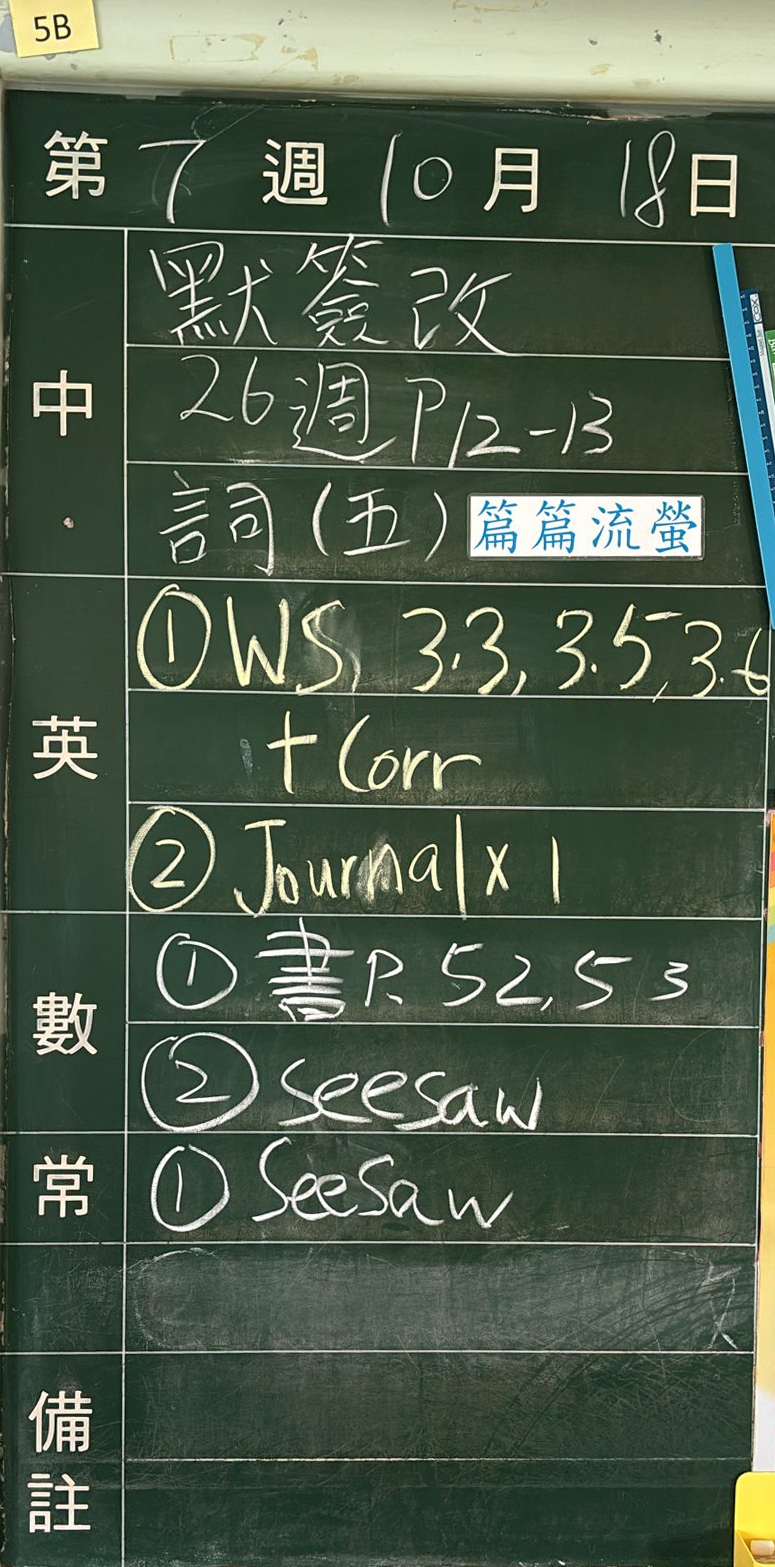 5B
第 7 週 10 月 18 日
中
默簽改
26週 P12-13
詞(五) 篇篇流螢
英
① WS, 3.3, 3.5, 3.6
+ Corr
② Journal x 1
數
① 書 P. 52, 53
② seesaw
常
① SeeSaw
備註